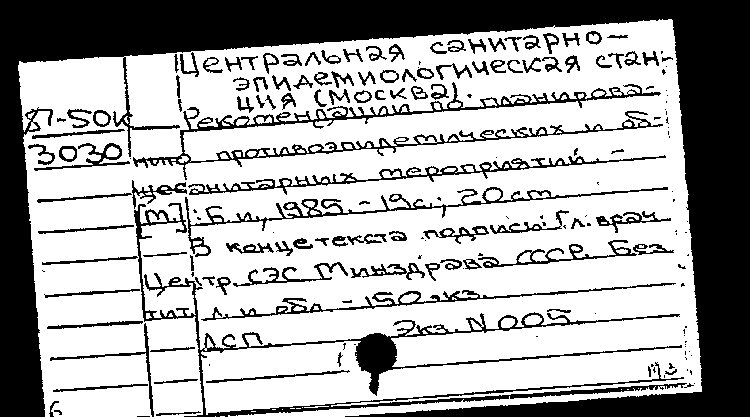 Центральная санитарно-
эпидемиологическая стан-
ция (Москва).
87-50к Рекомендации по планирова-
3030 нию противоэпидемических и об-
щесанитарных мероприятий. -
[М.]: Б.и., 1985. - 19с.; 20 см.
В конце текста подпись: Гл. врач
Центр. СЭС Минздрава СССР. Без
тит. л. и обл. - 150 экз.
ДСП. Экз. N 005.
МЗ
6